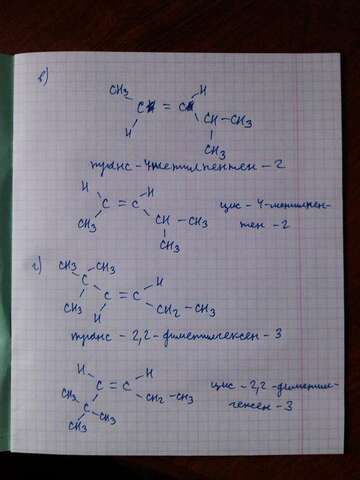 в)
CH3 H
C = C
H CH – CH3
CH3
транс - 4метилпентен - 2
H H
C = C
CH3 CH – CH3
CH3
цис - 4-метилпен-
тен - 2
г)
CH3 CH3
C H
CH3 C = C
H CH2 – CH3
транс - 2,2-диметилгексен - 3
H H
C = C
C CH2 – CH3
CH3 CH3
CH3
цис - 2,2-диметил-
гексен - 3